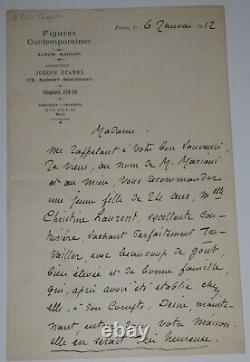 Figures
Contemporaines
ALBUM MARIANI
JOSEPH UZANNE
Boulevard Saint-Germain
Paris, le 6 Janvier
Madame,
me rappelant à Votre bon Souvenir
Je viens, au nom de M. Mariani
et au mien, Vous recommander
une jeune fille de 24 ans, Melle
Christine Laurent, excellente Cou-
turière, Sachant parfaitement Tra-
vailler, avec beaucoup de goût,
bien élevée et de bonne famille,
qui, après avoir été établie chez
elle, à Son Compte, Désire, mainte-
nant, entrer dans votre Maison.
elle en serait bien heureuse.